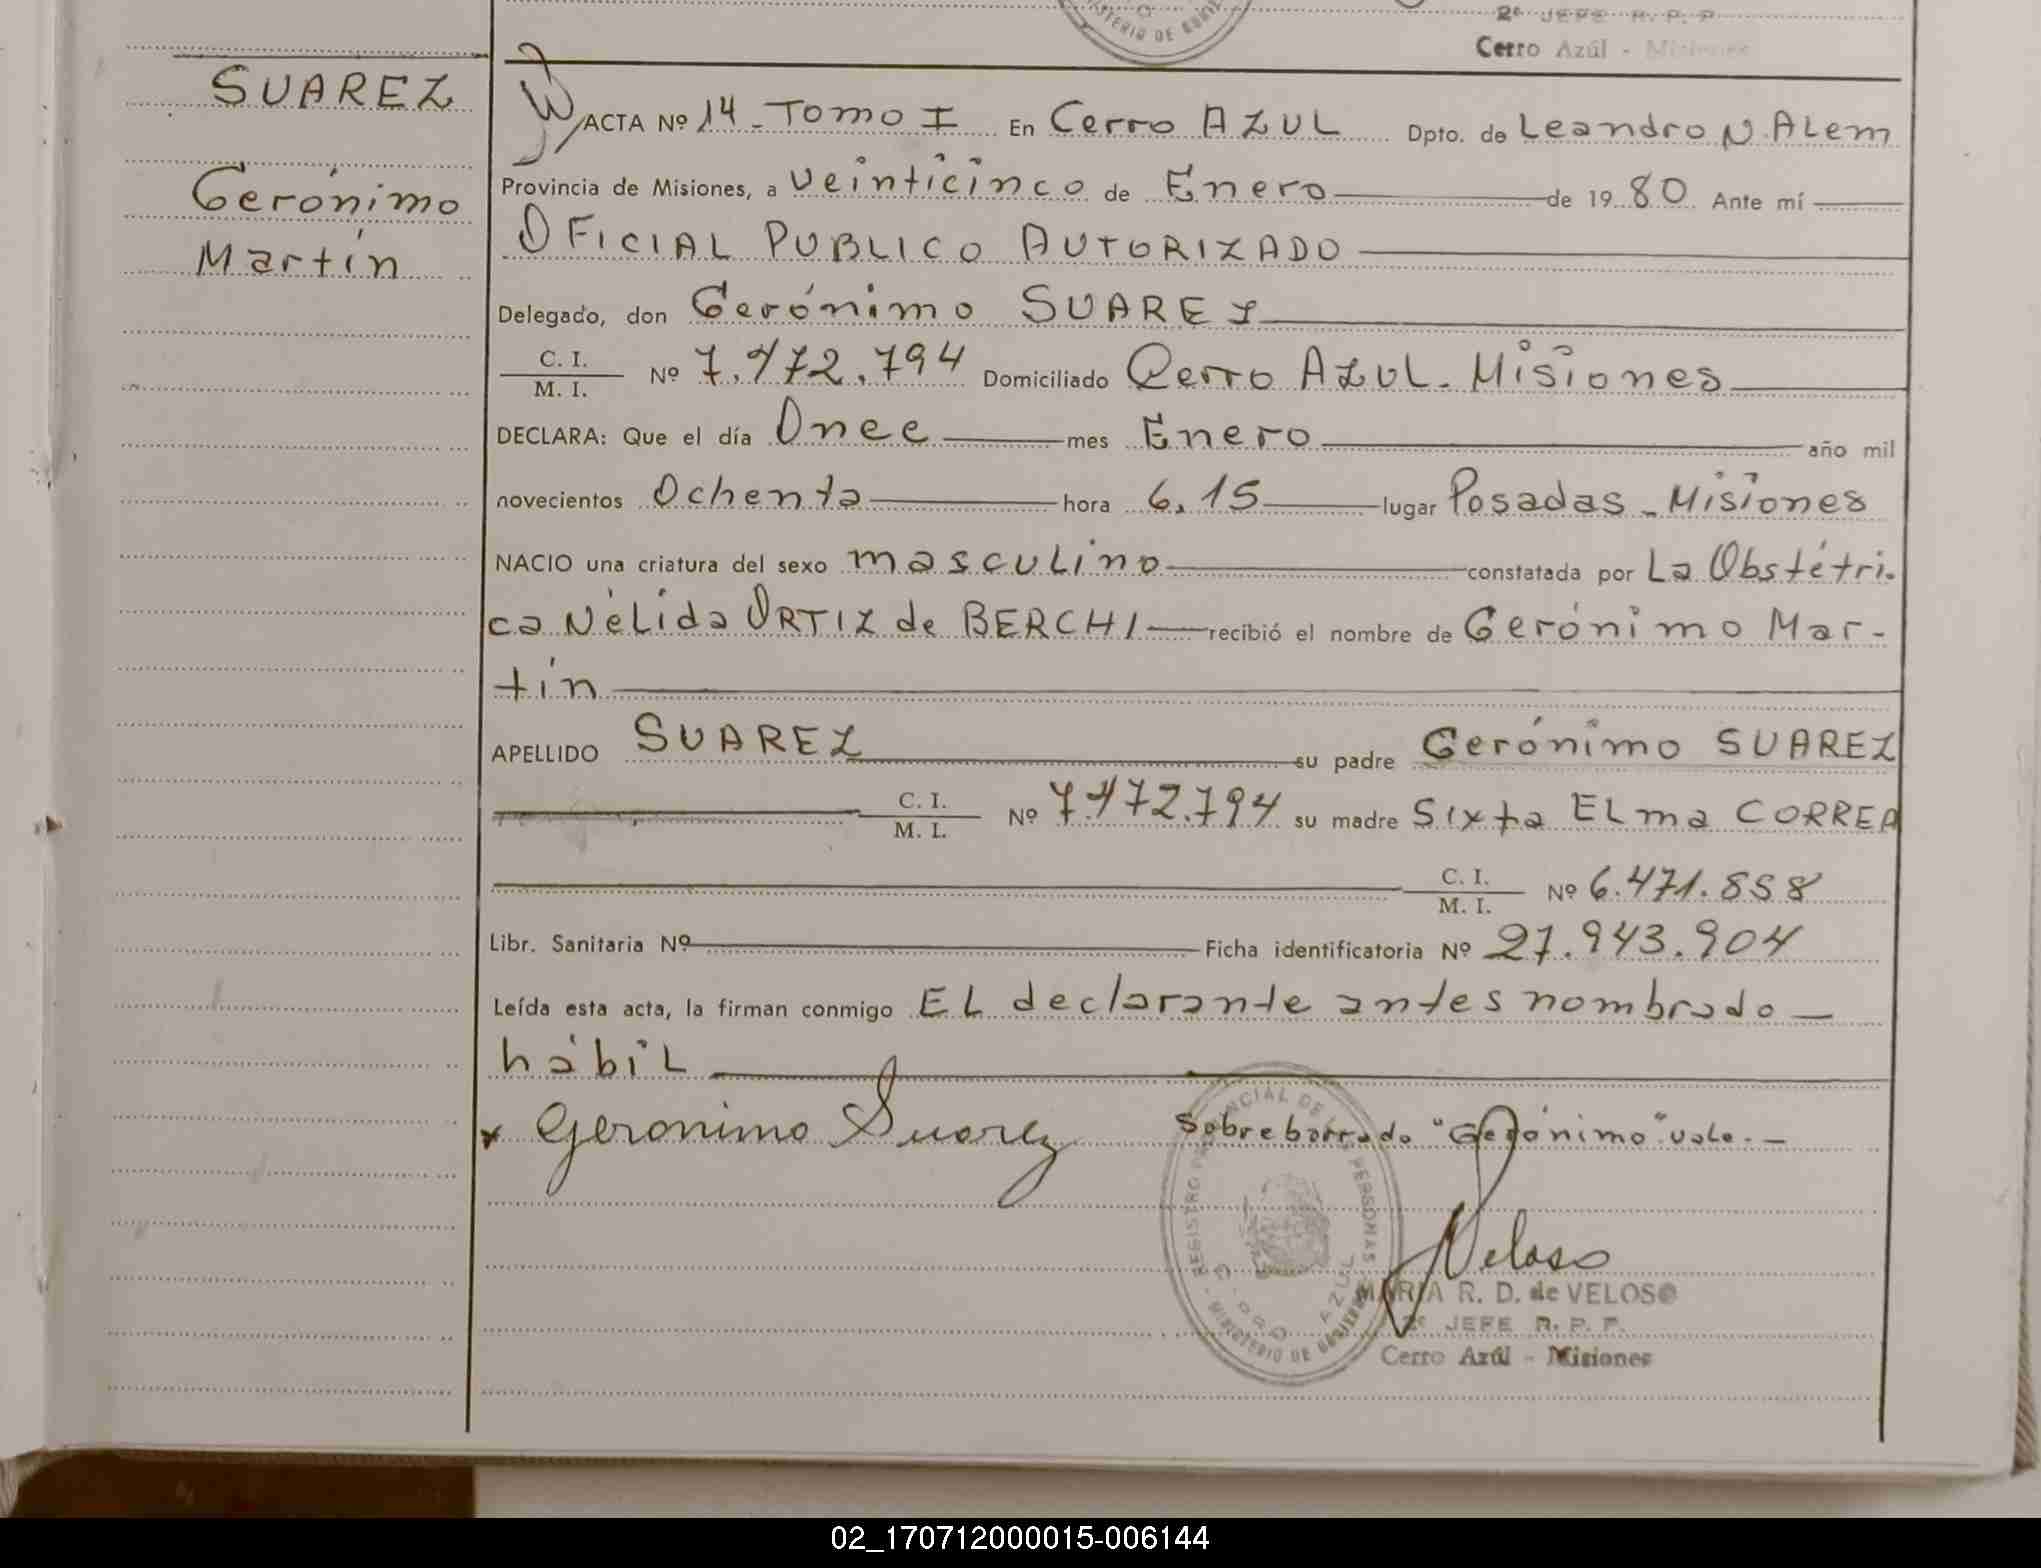 MINISTERIO DE GOBIE
2º JEFE R. P. P.
Cerro Azúl - Misiones
SUAREZ
Gerónimo
Martín
ACTA Nº 14 - Tomo I En Cerro AZUL Dpto. de Leandro N. ALem
Provincia de Misiones, a veinticinco de Enero de 1980 Ante mí
OFICIAL PUBLICO AUTORIZADO
Delegado, don Gerónimo SUAREZ
C. I.
M. I. Nº 7.472.794 Domiciliado Cerro AZUL - Misiones
DECLARA: Que el día Once mes Enero año mil
novecientos Ochenta hora 6,15 lugar Posadas - Misiones
NACIO una criatura del sexo masculino constatada por La Obstétri-
ca Nélida ORTIZ de BERCHI recibió el nombre de Gerónimo Mar-
tín
APELLIDO SUAREZ su padre Gerónimo SUAREZ
C. I.
M. I. Nº 7.472.794 su madre Sixta ELma CORREA
C. I.
M. I. Nº 6.471.858
Libr. Sanitaria Nº Ficha identificatoria Nº 27.943.904
Leída esta acta, la firman conmigo EL declarante antes nombrado -
hábil
x Geronimo Suarez Sobreborrado "Gerónimo" vale. -
REGISTRO PROVINCIAL DE LAS PERSONAS
CERRO AZUL
MINISTERIO DE GOBIERNO
Veloso
MARIA R. D. de VELOSO
2º JEFE R. P. P.
Cerro Azúl - Misiones
02_170712000015-006144